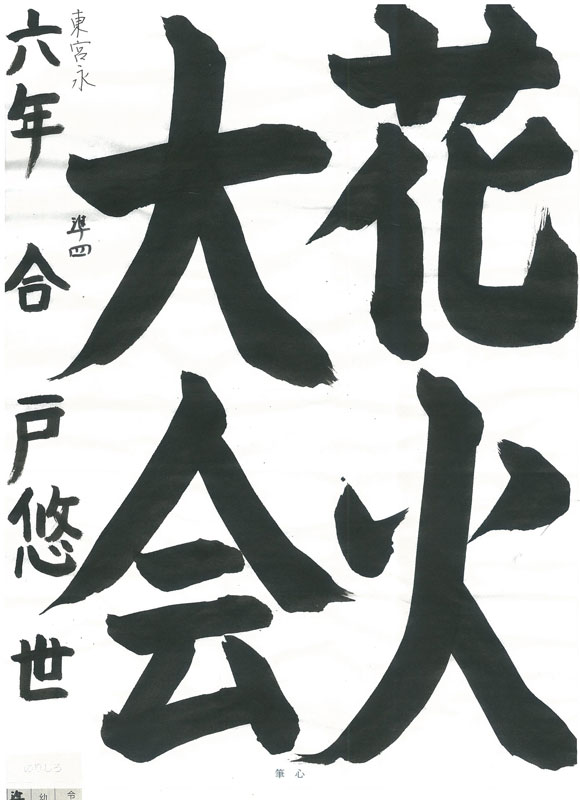 花火
大会
準四
東宮永
六年 合戸悠世
のりしろ
筆心
幼
令